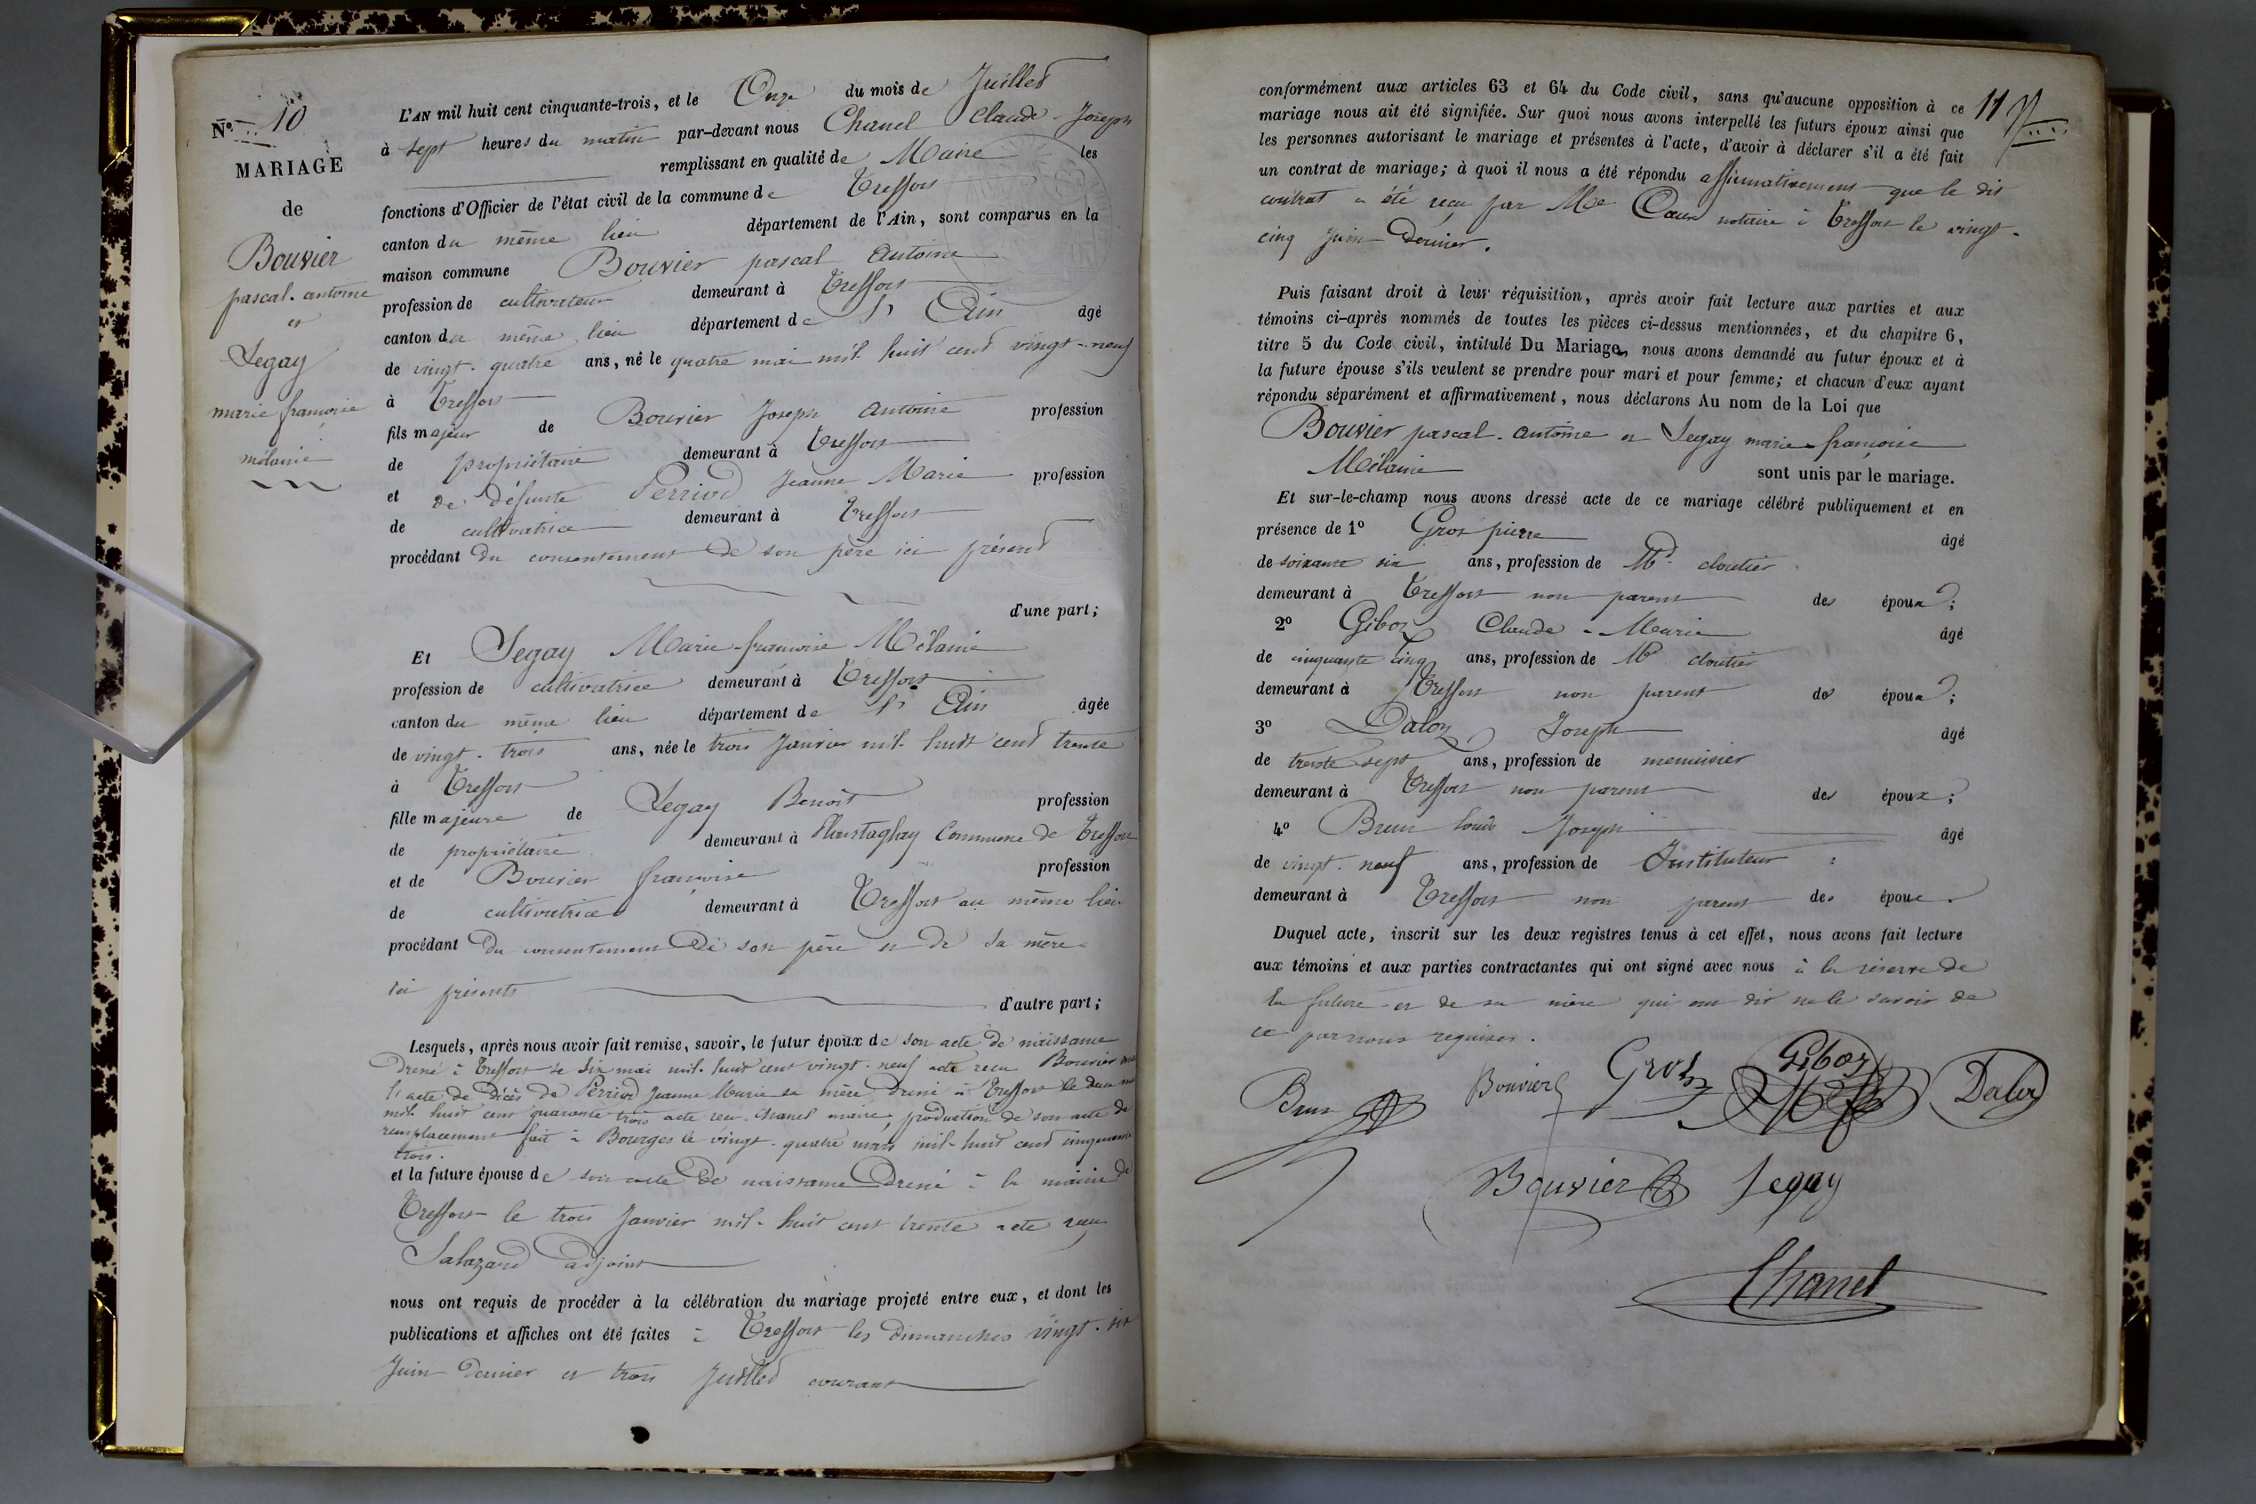 Nº 10
MARIAGE
de
Bouvier
pascal. antoine
et
Legay
marie françoise
mélanie
L'AN mil huit cent cinquante-trois, et le Onze du mois de Juillet
à sept heures du matin par-devant nous Chanel Claude-Joseph
remplissant en qualité de Maire les
fonctions d'Officier de l'état civil de la commune de Treffort
canton du même lieu département de l'Ain, sont comparus en la
maison commune Bouvier pascal antoine
profession de cultivateur demeurant à Treffort
canton du même lieu département de l' Ain âgé
de vingt-quatre ans, né le quatre mai mil huit cent vingt-neuf
à Treffort
fils majeur de Bouvier Joseph antoine profession
de propriétaire demeurant à Treffort
et de défunte Perriod Jeanne Marie profession
de cultivatrice demeurant à Treffort
procédant du consentement de son père ici présent
d'une part;
Et Legay Marie-françoise Mélanie
profession de cultivatrice demeurant à Treffort
canton du même lieu département de l' Ain âgée
de vingt-trois ans, née le trois Janvier mil huit cent trente
à Treffort
fille majeure de Legay Benoit profession
de propriétaire demeurant à Commune de Treffort
et de Bouvier françoise profession
de cultivatrice demeurant à Treffort au même lieu
procédant du consentement de son père et de sa mère
ici présents d'autre part;
Lesquels, après nous avoir fait remise, savoir, le futur époux de son acte de naissance
Dressé à Treffort le six mai mil huit cent vingt-neuf acte reçu Bouvier
l'acte de décès de Perriod Jeanne Marie sa mère dressé à Treffort le
mil huit cent quarante trois acte reçu Chanel maire, production de son acte de
remplacement fait à Bourges le vingt-quatre mars mil huit cent cinquante
trois.
et la future épouse de son acte de naissance Dressé à la mairie de
Treffort le trois Janvier mil huit cent trente acte reçu
Salazard adjoint
nous ont requis de procéder à la célébration du mariage projeté entre eux, et dont les
publications et affiches ont été faites à Treffort les dimanches vingt-six
Juin dernier et trois Juillet courant
11
conformément aux articles 63 et 64 du Code civil, sans qu'aucune opposition à ce
mariage nous ait été signifiée. Sur quoi nous avons interpellé les futurs époux ainsi que
les personnes autorisant le mariage et présentes à l'acte, d'avoir à déclarer s'il a été fait
un contrat de mariage; à quoi il nous a été répondu affirmativement que le dit
contrat a été reçu par Me notaire à Treffort le vingt-
cinq Juin Dernier.
Puis faisant droit à leur réquisition, après avoir fait lecture aux parties et aux
témoins ci-après nommés de toutes les pièces ci-dessus mentionnées, et du chapitre 6,
titre 5 du Code civil, intitulé Du Mariage, nous avons demandé au futur époux et à
la future épouse s'ils veulent se prendre pour mari et pour femme; et chacun d'eux ayant
répondu séparément et affirmativement, nous déclarons Au nom de la Loi que
Bouvier pascal-antoine et Legay marie-françoise
Mélanie sont unis par le mariage.
Et sur-le-champ nous avons dressé acte de ce mariage célébré publiquement et en
présence de 1º Gros pierre âgé
de soixante six ans, profession de Md cloutier
demeurant à Treffort non parent des époux;
2º Giboz Claude-Marie âgé
de cinquante cinq ans, profession de Md cloutier
demeurant à Treffort non parent des époux;
3º Daloz Joseph âgé
de trente sept ans, profession de menuisier
demeurant à Treffort non parent des époux;
4º Brun Louis Joseph âgé
de vingt-neuf ans, profession de Instituteur
demeurant à Treffort non parent des époux.
Duquel acte, inscrit sur les deux registres tenus à cet effet, nous avons fait lecture
aux témoins et aux parties contractantes qui ont signé avec nous à la réserve de
la future et de sa mère qui ont dit ne le savoir de
ce par nous requises.
Brun Bouvier Gros Giboz Daloz
Bouvier Legay
Chanel